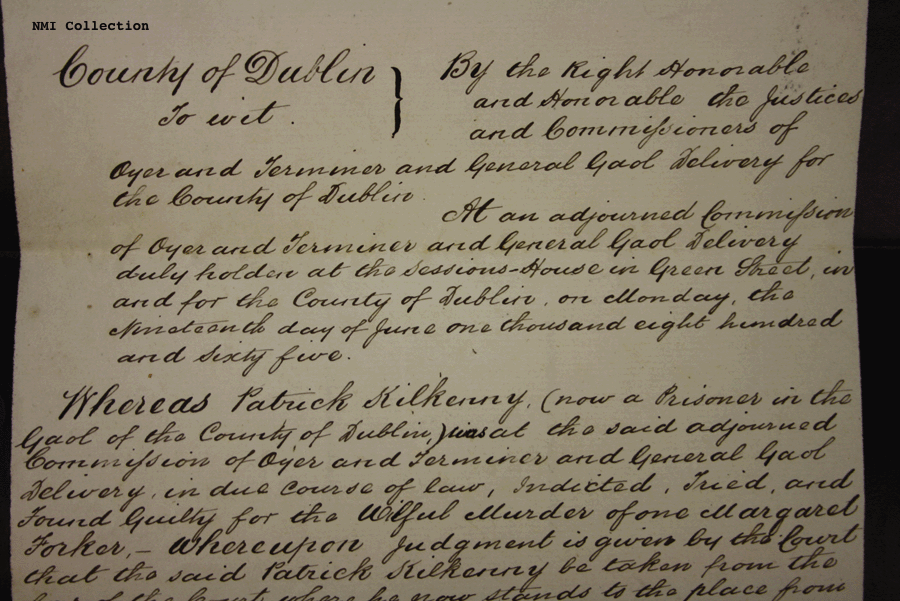 NMI Collection
County of Dublin
To wit.
}
By the Right Honorable
and Honorable the Justices
and Commissioners of
Oyer and Terminer and General Gaol Delivery for
the County of Dublin.
At an adjourned Commission
of Oyer and Terminer and General Gaol Delivery
duly holden at the Sessions-House in Green Street, in
and for the County of Dublin, on Monday, the
Nineteenth day of June one thousand eight hundred
and Sixty five.
Whereas Patrick Kilkenny, (now a Prisoner in the
Gaol of the County of Dublin,) was at the said adjourned
Commission of Oyer and Terminer and General Gaol
Delivery, in due course of law, Indicted, Tried, and
Found Guilty for the Wilful Murder of one Margaret
Forker,- Whereupon Judgment is given by the Court
that the said Patrick Kilkenny be taken from the
bar of the Court where he now stands to the place from